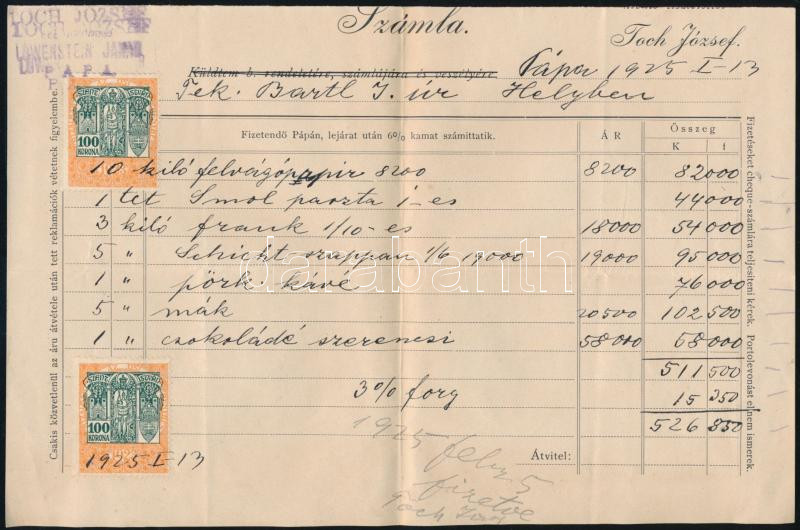 TOCH JÓZSEF
LŐWENSTEIN
PÁPA
Számla.
Toch József.
Küldtem b. rendeletére, számlájára és veszélyére
Pápa 1925 I-13
Tek. Bartl J. úr Helyben
Fizetendő Pápán, lejárat után 6% kamat számittatik. ÁR Összeg
K f
10 kiló felvágópapir 8200 8200 82000
1 tct Smol paszta 1-es 44000
3 kiló frank 1/10-es 18000 54000
5 " Schicht szappan 1/6 19000 19000 95000
1 " pörk. kávé 76000
5 " mák 20500 102500
1 " csokoládé szerencsi 58000 58000
511500
3% forg 15350
526850
1925
5
fizetve
Toch
Átvitel:
100
KORONA
100
KORONA
1925 I-13
Csakis közvetlenül az áru átvétele után tett reklamációk vétetnek figyelembe.
Fizetéseket cheque-számlára teljesiteni kérek. Portolevonást el nem ismerek.
darabanth